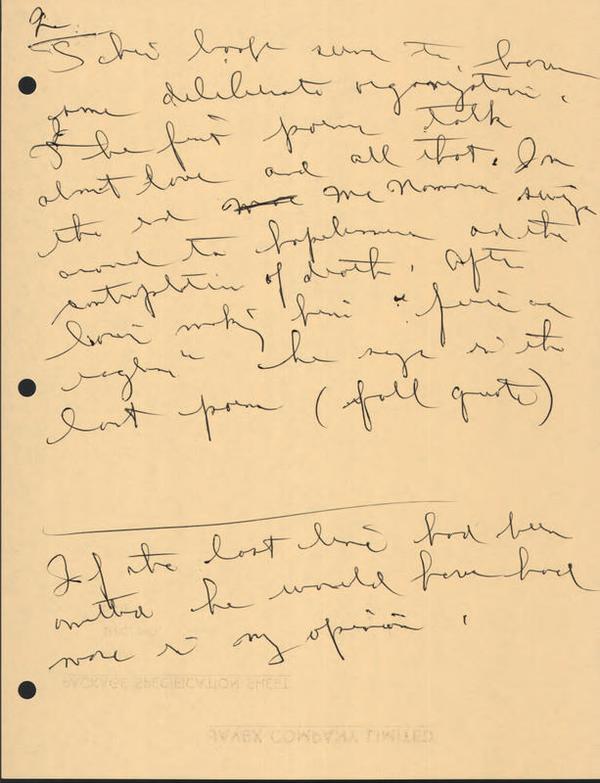 2.
This book seems to have
some deliberate organization.
The first poems talk
about love and all that. In
the end Mc Namara swings
around to hopelessness and the
contemplation of death. After
love making him "
he says in the
last poem (full quote)
If the last line had been
omitted he would have had
more in my opinion.
PACKAGE SPECIFICATION SHEET
JAVEX COMPANY LIMITED